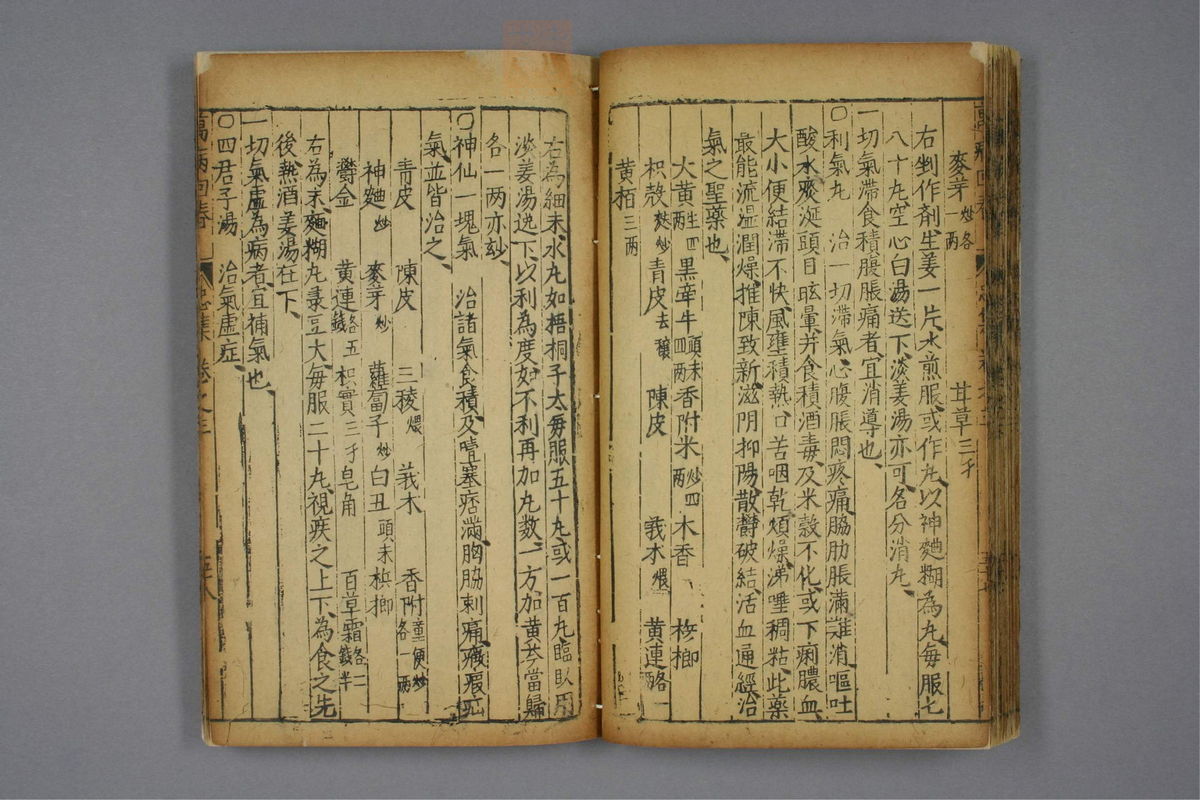 麥芽炒各一兩 甘草三錢
右剉作剤生姜一片水煎服或作丸以神麯糊為丸每服七
八十丸空心白湯送下淡姜湯亦可名分消丸
一切氣滯食積腹脹痛者宜消導也
○利氣丸 治一切滯氣心腹脹悶疼痛脇肋脹滿難消嘔吐
酸水痰涎頭目眩暈并食積酒毒及米穀不化或下痢膿血
大小便結滯不快風壅積熱口苦咽乾煩燥涕唾稠粘此藥
最能流温潤燥推陳致新滋阴抑陽散欝破結活血通經治
氣之聖藥也
大黄生四兩黒牽牛頭末四兩香附米炒四兩 木香 檳榔
枳殻麸炒青皮去穰 陳皮 莪术煨 黄連各一兩
黄栢三两
右為細末水丸如梧桐子大每服五十丸或一百丸臨臥用
淡姜湯送下以利為度如不利再加丸数一方加黄芩當歸
各一两亦玅
○神仙一塊氣 治諸氣食積及噎塞痞滿胸脇刺痛癥瘕疝
氣並皆治之
青皮 陳皮 三稜煨 莪木 香附童便炒各一两
神麯炒 麥芽炒 蘿蔔子炒白丑頭末 檳榔
鬱金 黄連各五錢枳實三錢皂角 百草霜各二錢半
右為末麵糊丸菉豆大每服二十丸視疾之上下為食之先
後熱酒姜湯任下
一切氣虛為病者宜補氣也
○四君子湯 治氣虛症
萬病回春 忠集 卷之三 五十八